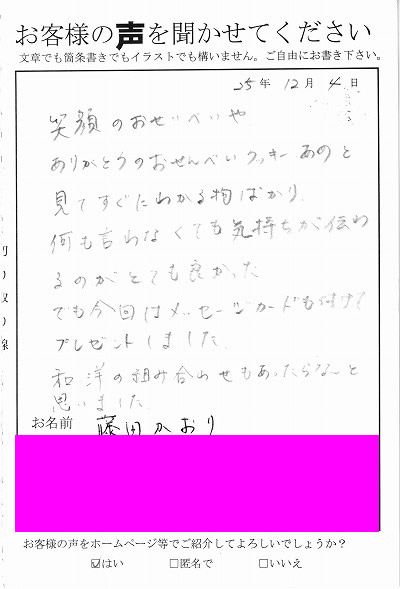 お客様の声を聞かせてください
文章でも箇条書きでもイラストでも構いません。ご自由にお書き下さい。
25年 12月 4日
笑顔のおせんべいや
ありがとうのおせんべいクッキーあのと
見てすぐにわかる物ばかり、
何も言わなくても気持ちが伝わ
るのがとても良かった
でも今回はメッセージカードも付けて
プレゼントしました。
和洋の組み合わせもあったらな〜と
思いました。
お名前 藤田かおり
切り取り線
お客様の声をホームページ等でご紹介してよろしいでしょうか？
☑はい □匿名で □いいえ